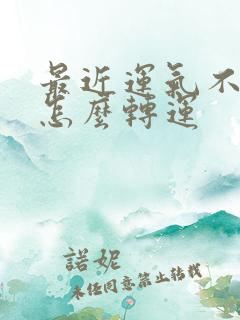 最近運氣不
怎麼轉運
諾妮
未經同意禁止轉載